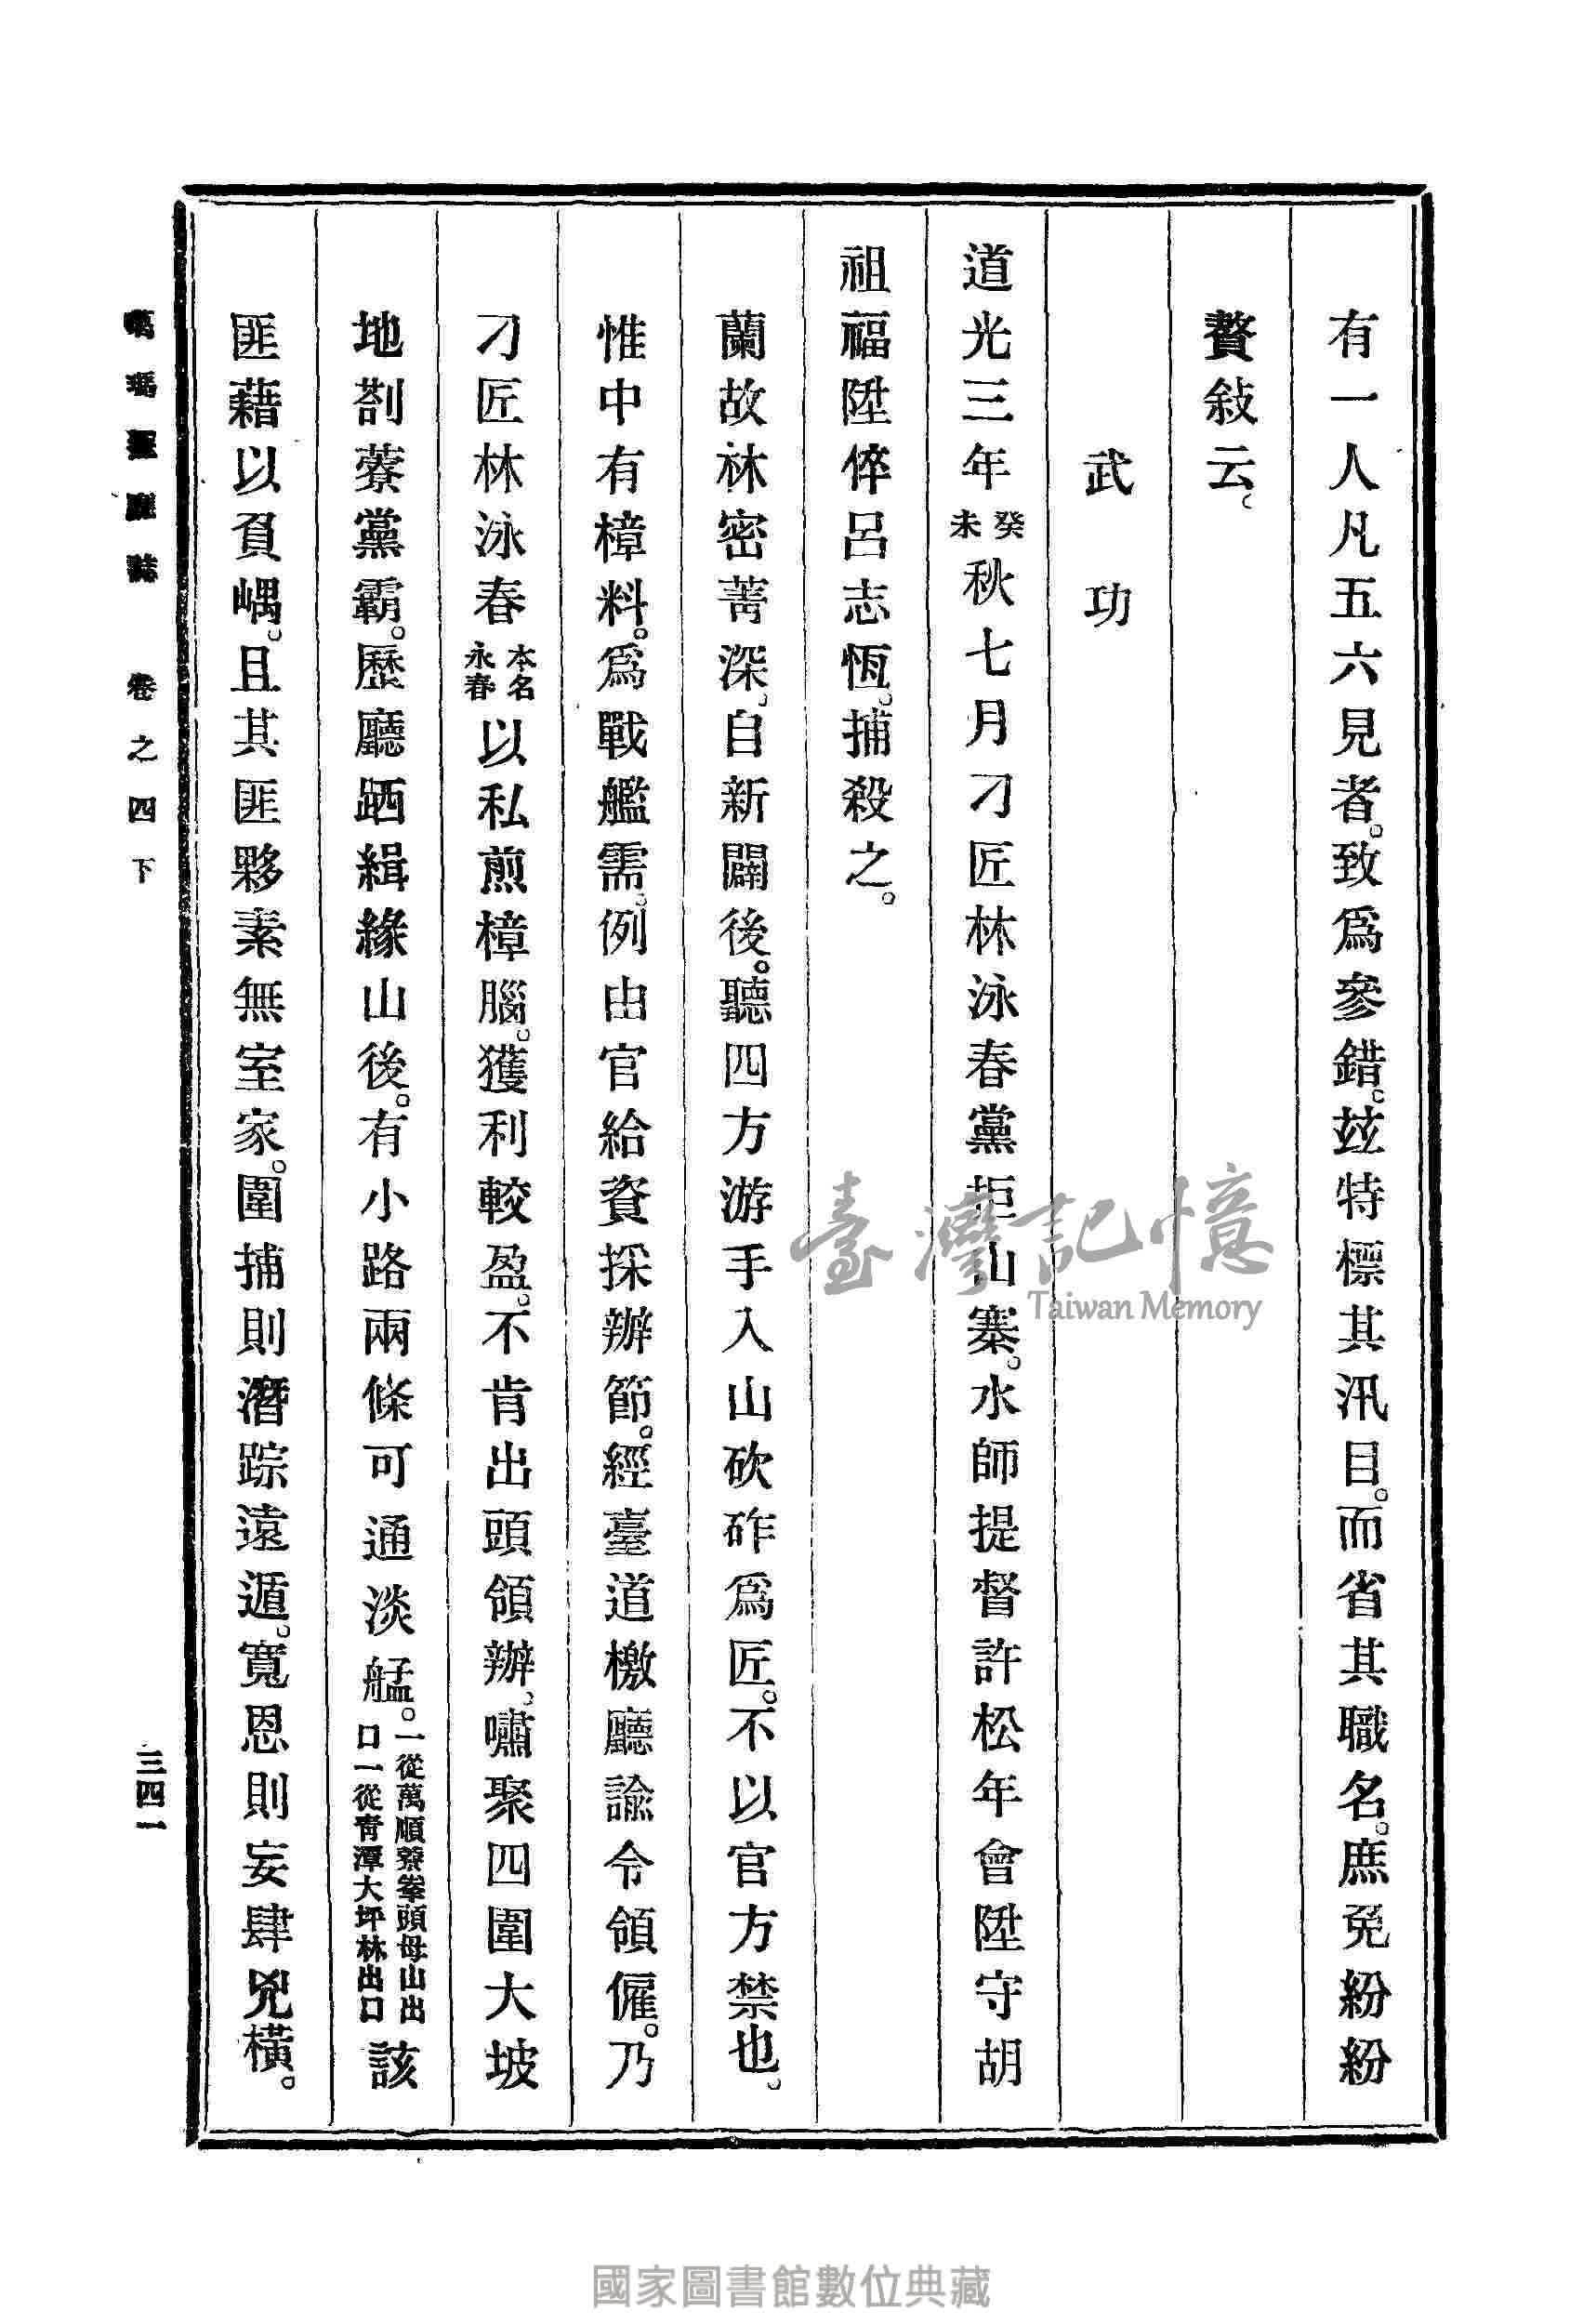 有一人凡五六見者。致爲參錯。玆特標其汛目。而省其職名。庶免紛紛
贅敍云。
武功
道光三年癸未秋七月刁匠林泳春黨拒山寨。水師提督許松年會陞守胡
祖福陞倅呂志恆。捕殺之。
蘭故林密菁深。自新闢後。聽四方游手入山砍砟爲匠。不以官方禁也。
惟中有樟料。爲戰艦需。例由官給資採辦節。經臺道檄廳諭令領僱。乃
刁匠林泳春本名永春以私煎樟腦。獲利較盈。不肯出頭領辦。嘯聚四圍大坡
地劄藔黨霸。歷廳跴緝緣山後。有小路兩條可通淡艋。一從萬順藔拳頭母山出口一從靑潭大坪林出口該
匪藉以負嵎。且其匪夥素無室家。圍捕則潛踪遠遁。寬恩則妄肆兇橫。
噶瑪蘭廳誌 卷之四下
三四一
臺灣記憶
Taiwan Memory
國家圖書館數位典藏